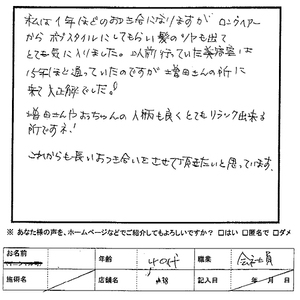 私は1年ほどのおつき合いになりますが ロングヘアー
からボブスタイルにしてもらい髪のツヤも出て
とても気に入りました。以前行っていた美容室は
15年ほど通っていたのですが 増田さんの所に
来て大正解でした。
増田さんやおちゃんの人柄も良くとてもリラックス出来る
所ですネ!
これからも長いおつき合いをさせて頂きたいと思っています。
※ あなた様の声を、ホームページなどでご紹介してもよろしいですか? □はい □匿名で □ダメ
お名前 年齢 40代 職業 会社員
施術名 店舗名 記入日 年 月 日